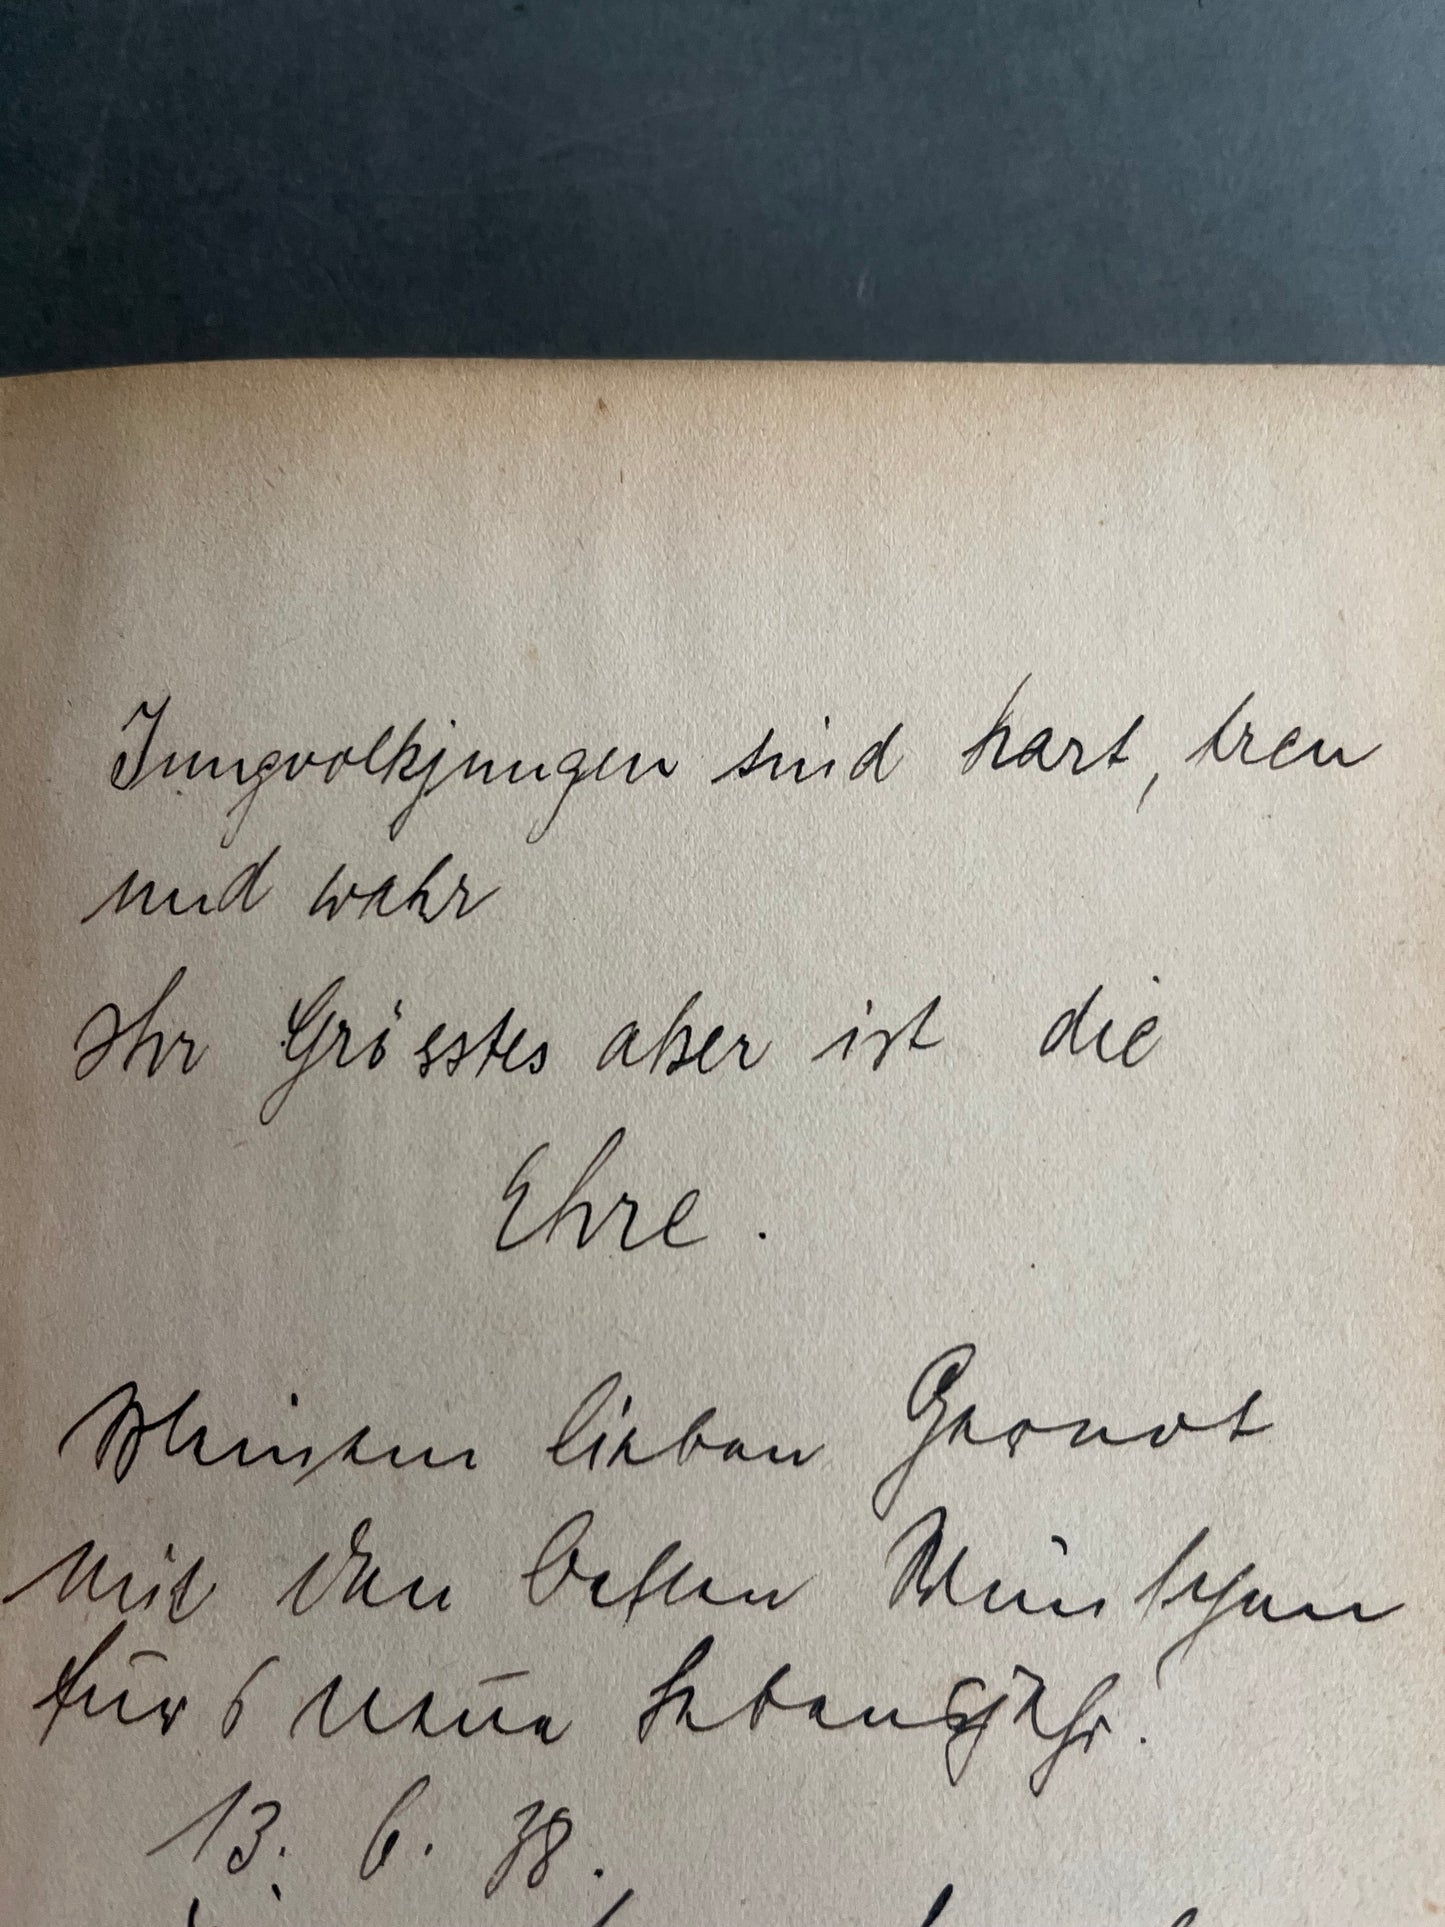 Jungvolkjungen sind hart, treu
und wahr
Ihr Grösstes aber ist die
Ehre.
Meinem lieben Gernot
mit den besten Wünschen
für's neue Lebensjahr.
13. 6. 38.